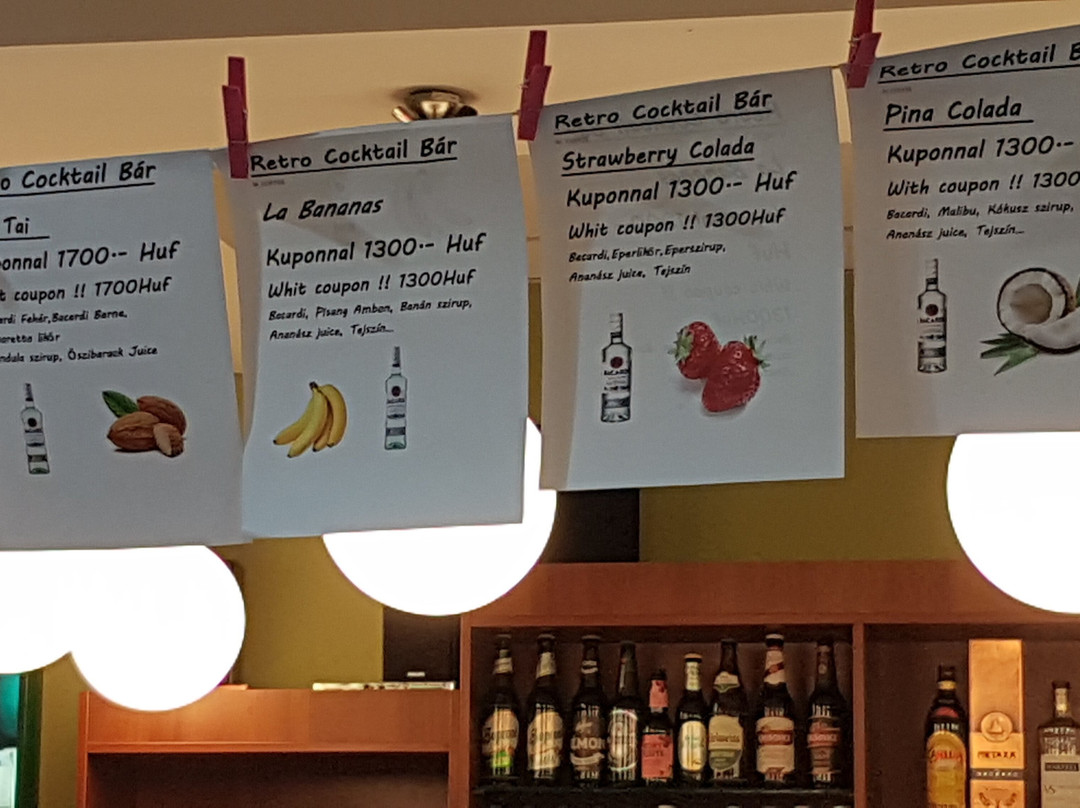 o Cocktail Bár
Tai
onnal 1700.-- Huf
t coupon !! 1700Huf
rdi Fehér, Bacardi Barna,
aretto likőr
ndula szirup, Őszibarack Juice
Retro Cocktail Bár
La Bananas
Kuponnal 1300.-- Huf
Whit coupon !! 1300Huf
Bacardi, Pisang Ambon, Banán szirup,
Ananász juice, Tejszín...
Retro Cocktail Bár
Strawberry Colada
Kuponnal 1300.-- Huf
Whit coupon !! 1300Huf
Bacardi, Eperlikőr, Eperszirup,
Ananász juice, Tejszín
BACARDI
Retro Cocktail B
Pina Colada
Kuponnal 1300.--
With coupon !! 1300
Bacardi, Malibu, Kókusz szirup,
Ananász juice, Tejszín...
BACARDI
METAXA